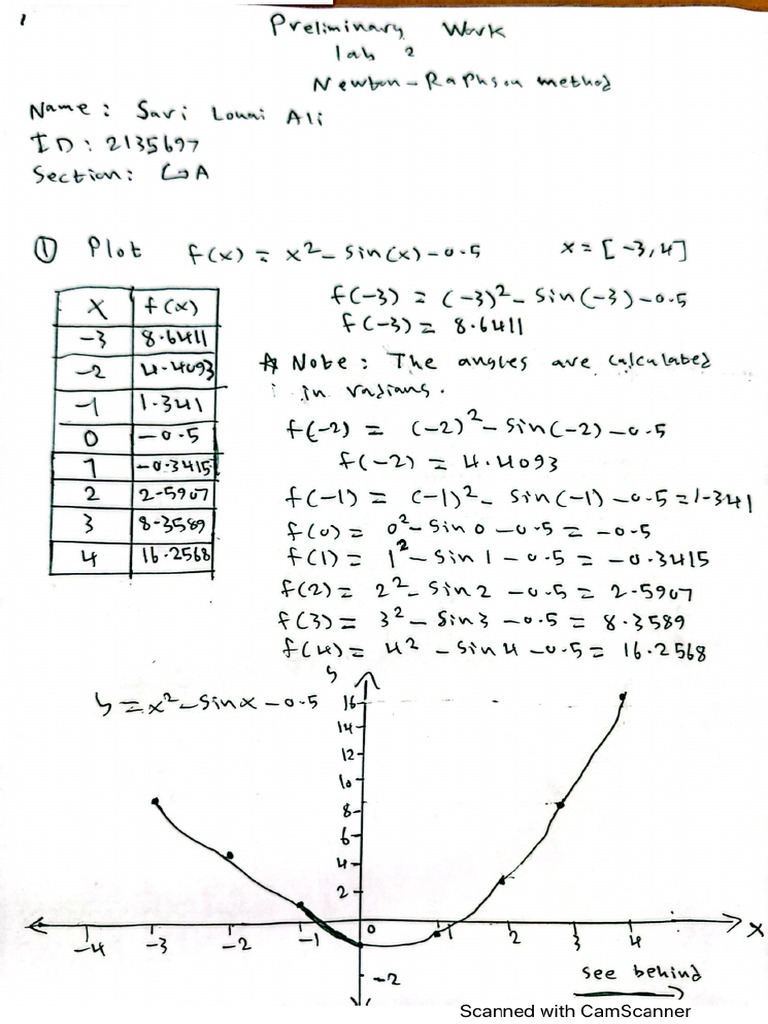 1
Preliminary Work
lab 2
Newton-Raphson method
Name: Sari Louai Ali
ID: 2135697
Section: A
① Plot f(x) = x² - sin(x) - 0.5 x = [-3,4]
x f(x)
-3 8.6411
-2 4.4093
-1 1.341
0 -0.5
1 -0.3415
2 2.5907
3 8.3589
4 16.2568
f(-3) = (-3)² - sin(-3) - 0.5
f(-3) = 8.6411
Note: The angles are calculated
in radians.
f(-2) = (-2)² - sin(-2) - 0.5
f(-2) = 4.4093
f(-1) = (-1)² - sin(-1) - 0.5 = 1.341
f(0) = 0² - sin 0 - 0.5 = -0.5
f(1) = 1² - sin 1 - 0.5 = -0.3415
f(2) = 2² - sin 2 - 0.5 = 2.5907
f(3) = 3² - sin 3 - 0.5 = 8.3589
f(4) = 4² - sin 4 - 0.5 = 16.2568
y
y = x² - sinx - 0.5
16
14
12
10
8
6
4
2
-4 -3 -2 -1 0 1 2 3 4 x
-2
see behind
Scanned with CamScanner